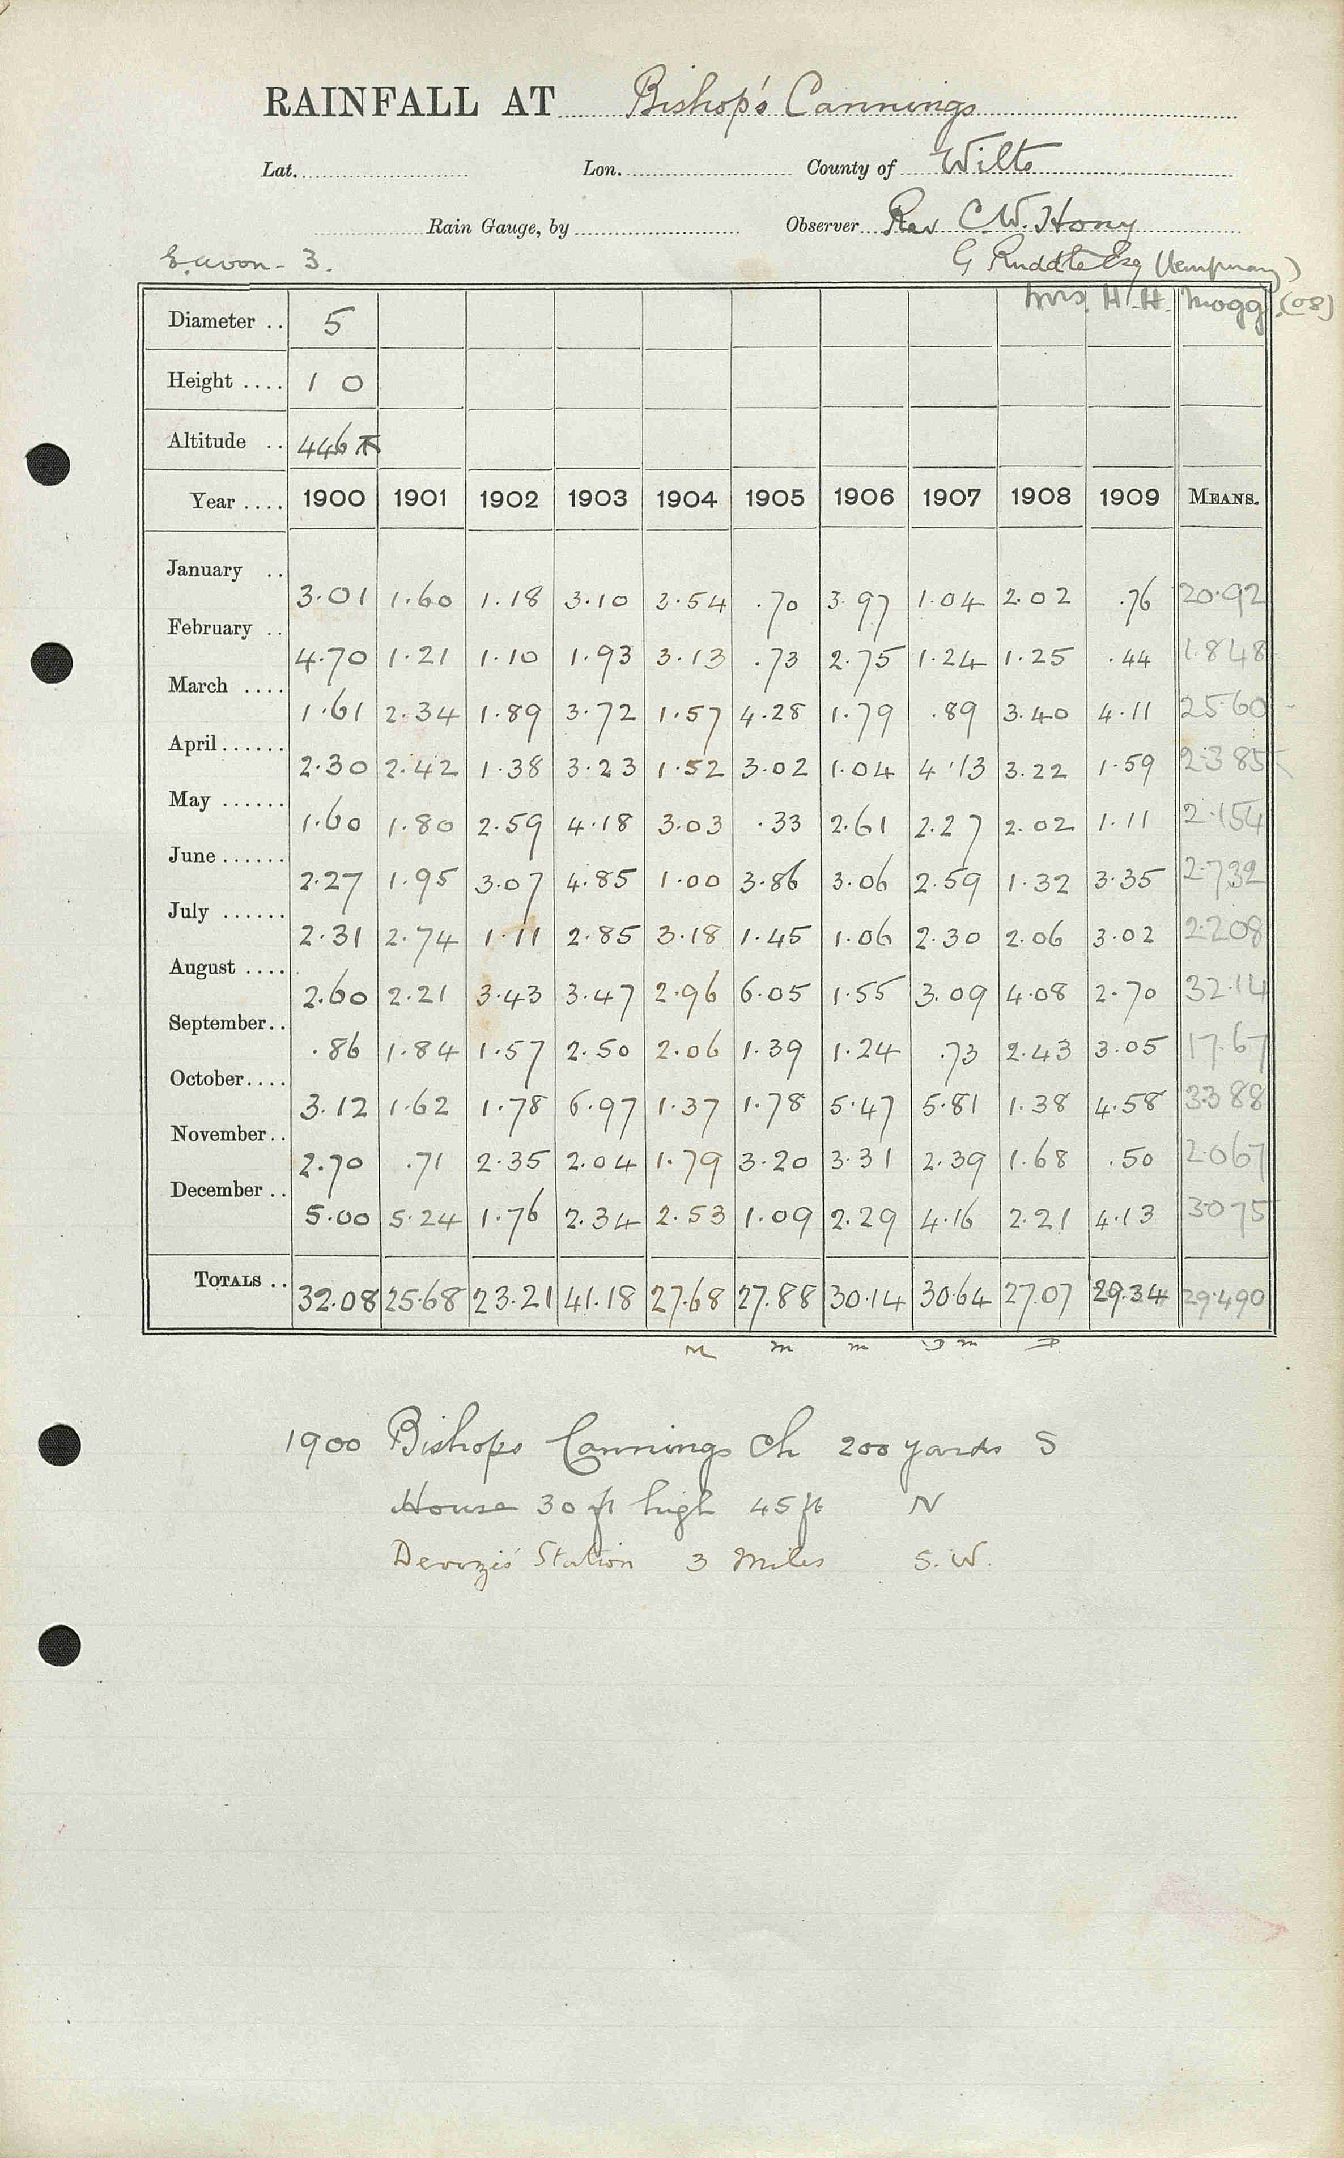 RAINFALL AT Bishop's Cannings
Lat. Lon. County of Wilts
Rain Gauge, by Observer Rev C.W. Hony
E. Avon - 3. G Ruddle Esq (temporary)
Mrs. H. H. Mogg (08)
Diameter .. 5
Height .... 1 0
Altitude .. 446
Year .... 1900 1901 1902 1903 1904 1905 1906 1907 1908 1909 MEANS.
January .. 3.01 1.60 1.18 3.10 3.54 .70 3.97 1.04 2.02 .76 20.92
February .. 4.70 1.21 1.10 1.93 3.13 .73 2.75 1.24 1.25 .44 1.848
March .... 1.61 2.34 1.89 3.72 1.57 4.28 1.79 .89 3.40 4.11 2560
April ...... 2.30 2.42 1.38 3.23 1.52 3.02 1.04 4.13 3.22 1.59 2.385
May ...... 1.60 1.80 2.59 4.18 3.03 .33 2.61 2.27 2.02 1.11 2.154
June ...... 2.27 1.95 3.07 4.85 1.00 3.86 3.06 2.59 1.32 3.35 2.732
July ...... 2.31 2.74 1.11 2.85 3.18 1.45 1.06 2.30 2.06 3.02 2.208
August .... 2.60 2.21 3.43 3.47 2.96 6.05 1.55 3.09 4.08 2.70 32.14
September .. .86 1.84 1.57 2.50 2.06 1.39 1.24 .73 2.43 3.05 17.67
October .... 3.12 1.62 1.78 6.97 1.37 1.78 5.47 5.81 1.38 4.58 3388
November .. 2.70 .71 2.35 2.04 1.79 3.20 3.31 2.39 1.68 .50 2.067
December .. 5.00 5.24 1.76 2.34 2.53 1.09 2.29 4.16 2.21 4.13 3075
TOTALS .. 32.08 25.68 23.21 41.18 27.68 27.88 30.14 30.64 27.07 29.34 29.490
M m m D m D
1900 Bishops Cannings Ch 200 yards S
House 30 ft high 45 ft N
Devizes Station 3 Miles S.W.